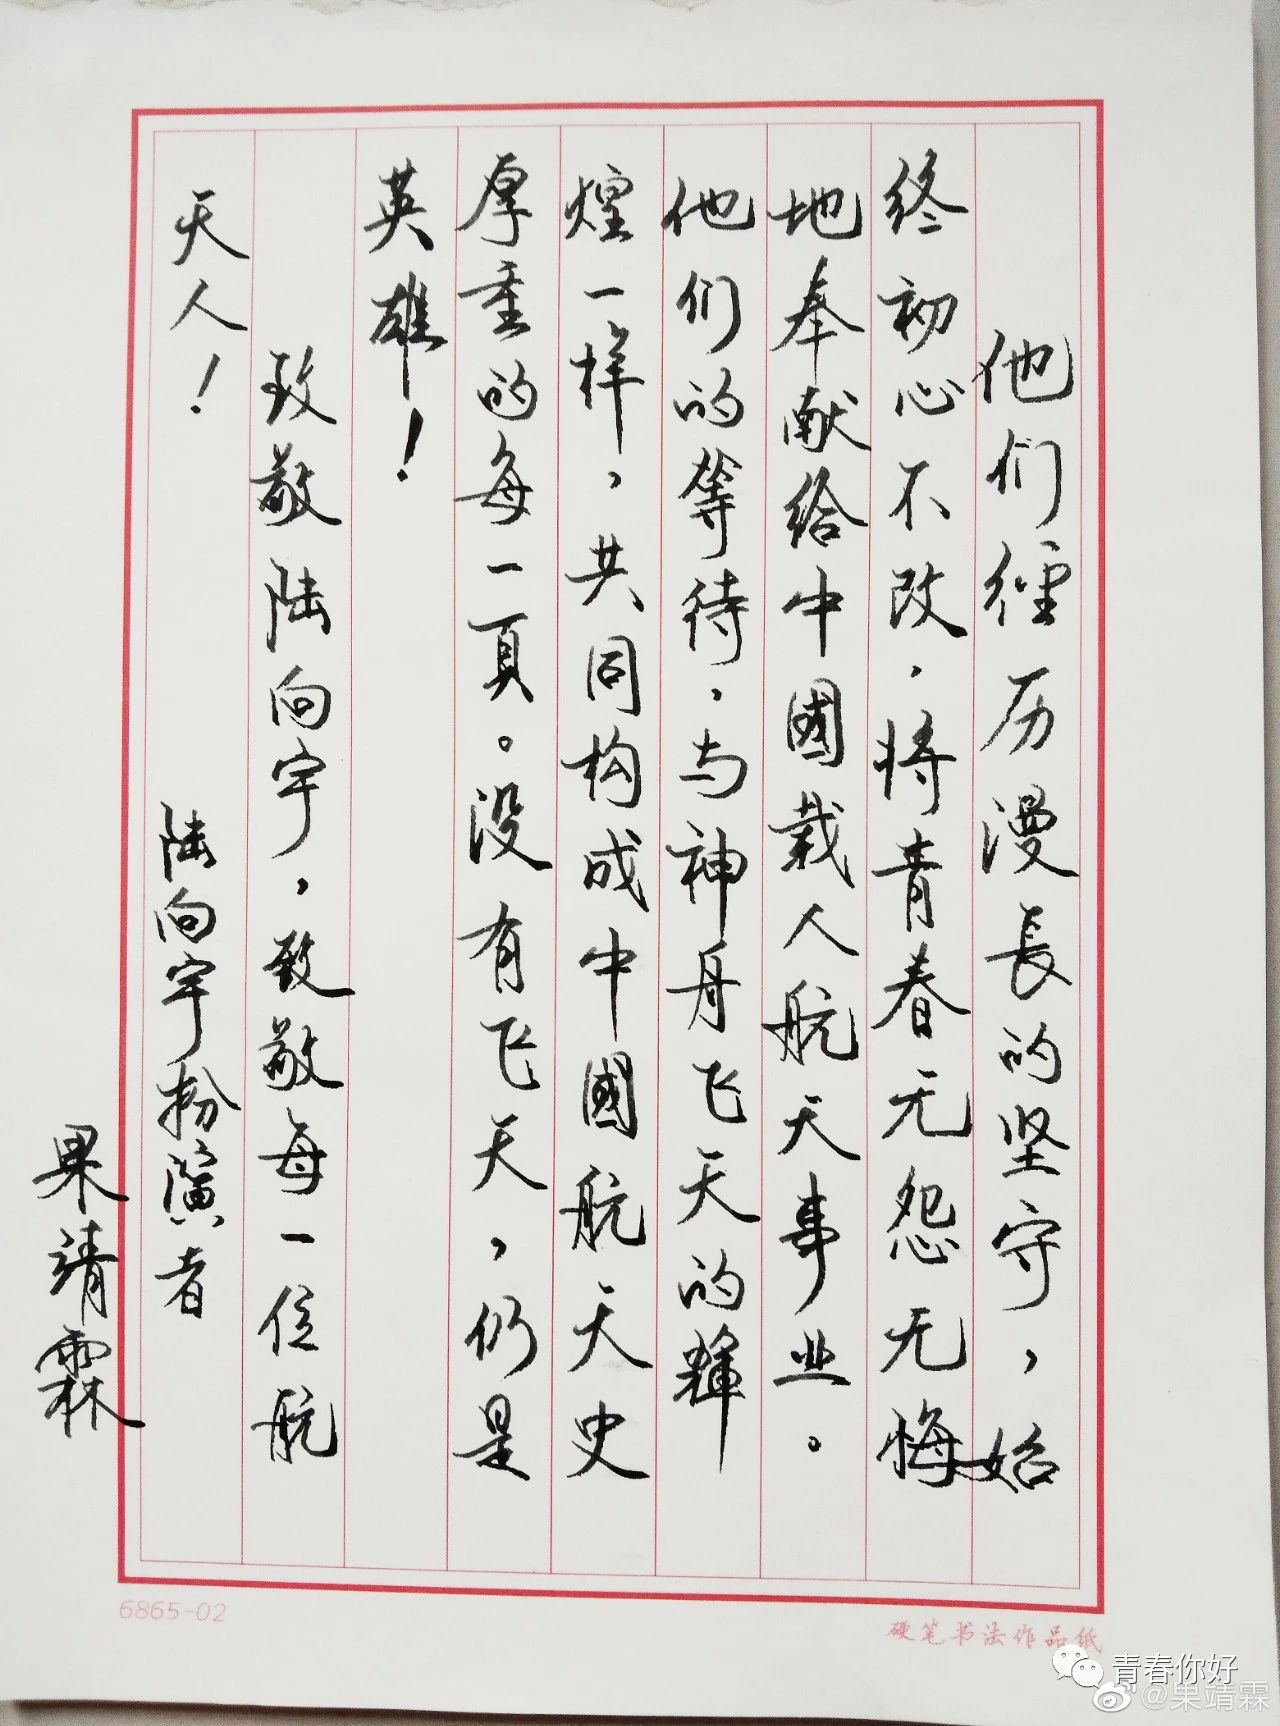 他们经历漫長的坚守，始
终初心不改，将青春无怨无悔
地奉献给中國载人航天事业。
他们的等待，与神舟飞天的輝
煌一样，共同构成中國航天史
厚重的每一頁。没有飞天，仍是
英雄！
致敬陆向宇，致敬每一位航
天人！
陆向宇扮演者
果靖霖
6865-02
硬笔书法作品纸
青春你好
@果靖霖